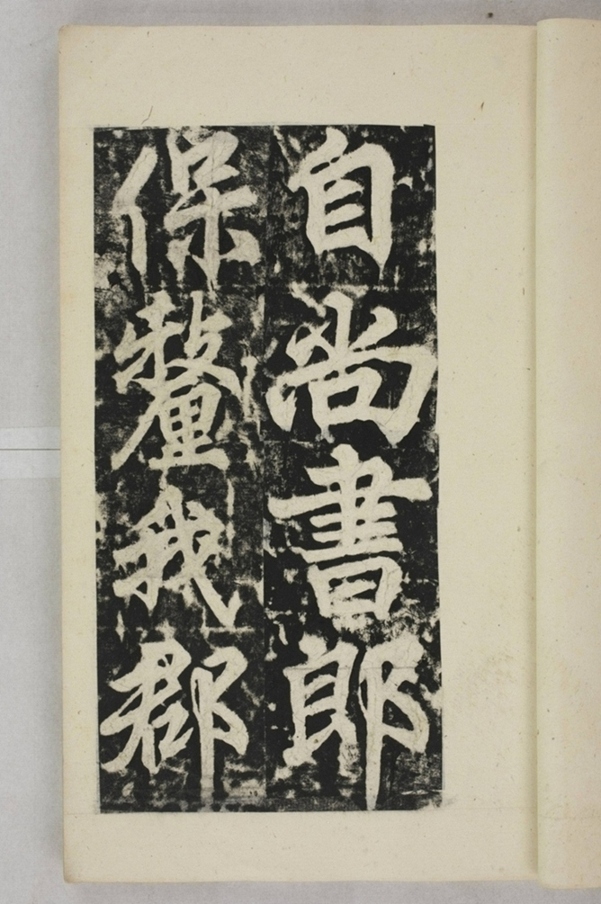 自尚書郎
保釐我郡